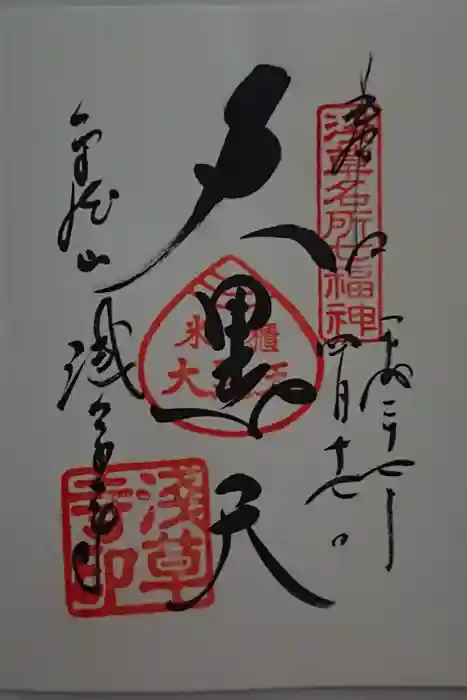 奉拝
浅草名所七福神
平成二十七年
四月十七日
大黒天
米櫃
大黒天
金龍山
浅草寺
浅草
寺印